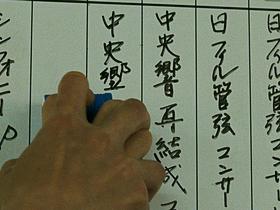 日フィル管弦コンサー
日フィル管弦コンサー
中央響再結成コ
中央響
シンフォニーP